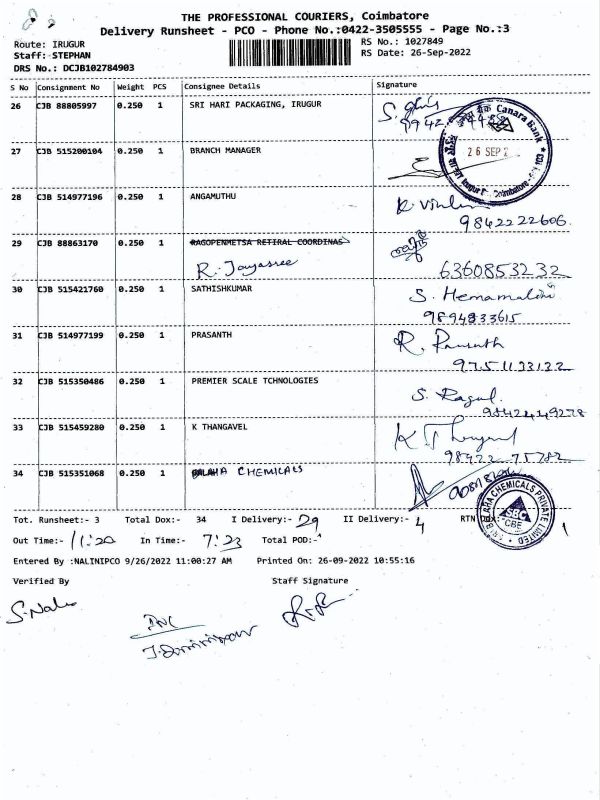 THE PROFESSIONAL COURIERS, Coimbatore
Delivery Runsheet - PCO - Phone No.:0422-3505555 - Page No.:3
Route: IRUGUR
RS No.: 1027849
Staff: STEPHAN
RS Date: 26-Sep-2022
DRS No.: DCJB102784903
S No Consignment No Weight PCS Consignee Details Signature
26 CJB 88805997 0.250 1 SRI HARI PACKAGING, IRUGUR
Canara Bank
26 SEP 2
27 CJB 515200104 0.250 1 BRANCH MANAGER
28 CJB 514977196 0.250 1 ANGAMUTHU
9842222606.
29 CJB 88863170 0.250 1 RAGOPENMETSA RETIRAL COORDINAS
R. Jayasree
6360853232
30 CJB 515421760 0.250 1 SATHISHKUMAR S. Hemamalini
9894833615
31 CJB 514977199 0.250 1 PRASANTH
32 CJB 515350486 0.250 1 PREMIER SCALE TCHNOLOGIES S. Ragul
33 CJB 515459280 0.250 1 K THANGAVEL
34 CJB 515351068 0.250 1 CHEMICALS
CHEMICALS PRIVATE LIMITED
SBC
CBE
Tot. Runsheet:- 3 Total Dox:- 34 I Delivery:- 29 II Delivery:- 4 RTN Dox:- 1
Out Time:- 11:20 In Time:- 7:23 Total POD:-
Entered By :NALINIPCO 9/26/2022 11:00:27 AM Printed On: 26-09-2022 10:55:16
Verified By Staff Signature